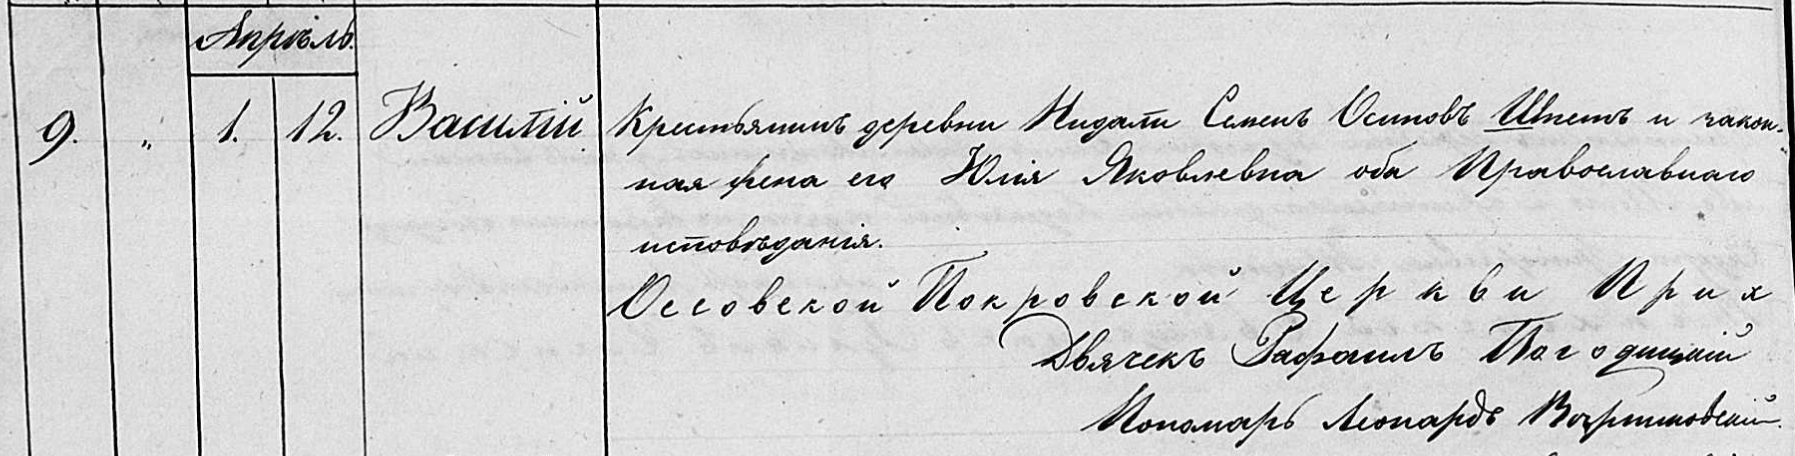 Апрѣль.
9. „ 1. 12. Василій Крестьянинъ деревни Нидали Семенъ Осиповъ Шпетъ и закон-
ная жена его Юлія Яковлевна оба Православнаго
исповѣданія.
Оссовской Покровской Церкви Прих
Дьячекъ Рафаилъ Погодицкій
Пономарь Леонардъ